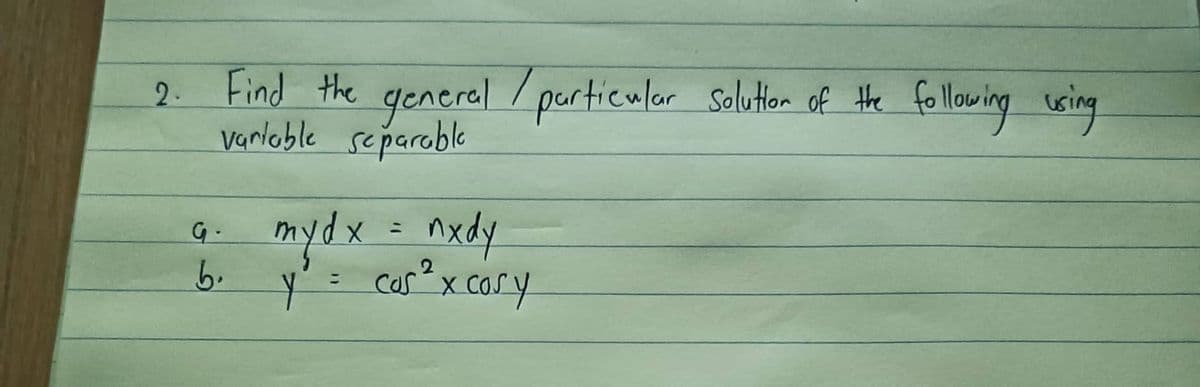 2. Find the general / particular solution of the following using
variable separable
a. mydx = nxdy
b. y' = cos²x cos y